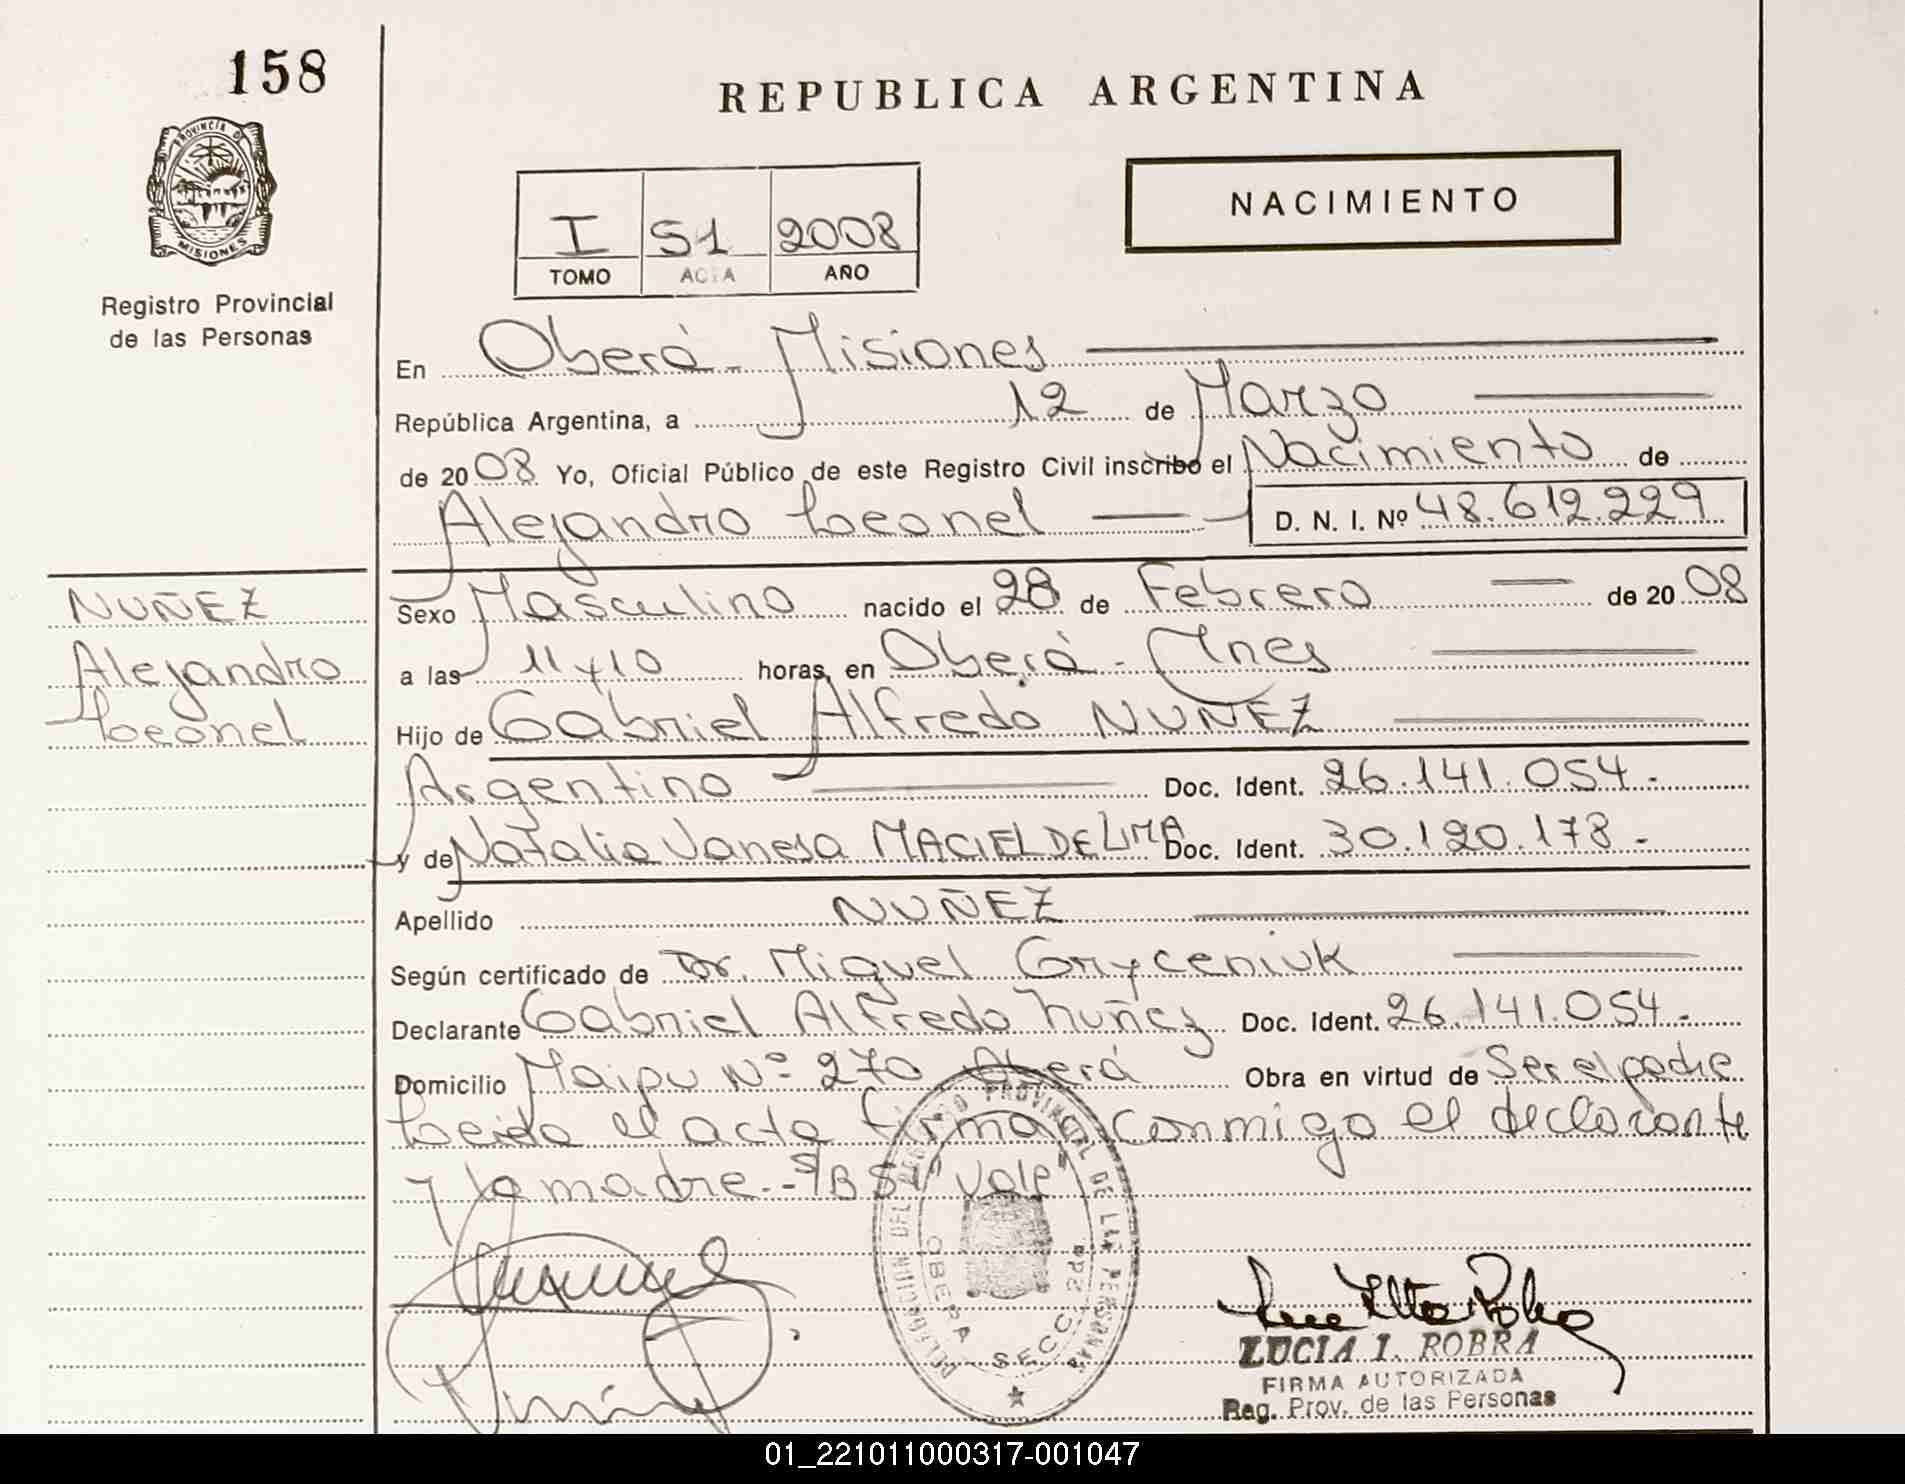 158
REPUBLICA ARGENTINA
PROVINCIA DE
MISIONES
Registro Provincial
de las Personas
I 51 2008
TOMO ACTA AÑO
NACIMIENTO
En Oberá - Misiones
República Argentina, a 12 de Marzo
de 2008 Yo, Oficial Público de este Registro Civil inscribo el Nacimiento de
Alejandro Leonel D. N. I. Nº 48.612.229
NUÑEZ
Alejandro
Leonel
Sexo Masculino nacido el 28 de Febrero de 2008
a las 11 y 10 horas, en Oberá - Mnes
Hijo de Gabriel Alfredo NUÑEZ
Argentino Doc. Ident. 26.141.054.-
y de Natalia Vanesa MACIEL DE LIMA Doc. Ident. 30.120.178.-
Apellido NUÑEZ
Según certificado de Dr. Miguel Gryceniuk
Declarante Gabriel Alfredo Nuñez Doc. Ident. 26.141.054.-
Domicilio Maipu Nº 270 Oberá Obra en virtud de Ser el padre
Leida el acta firman conmigo el declarante
y la madre.- S/B 51 "Vale"
DELEGACION DEL REGISTRO PROVINCIAL DE LAS PERSONAS
OBERA SECC. 2da
LUCIA I. ROBRA
FIRMA AUTORIZADA
Reg. Prov. de las Personas
01_221011000317-001047